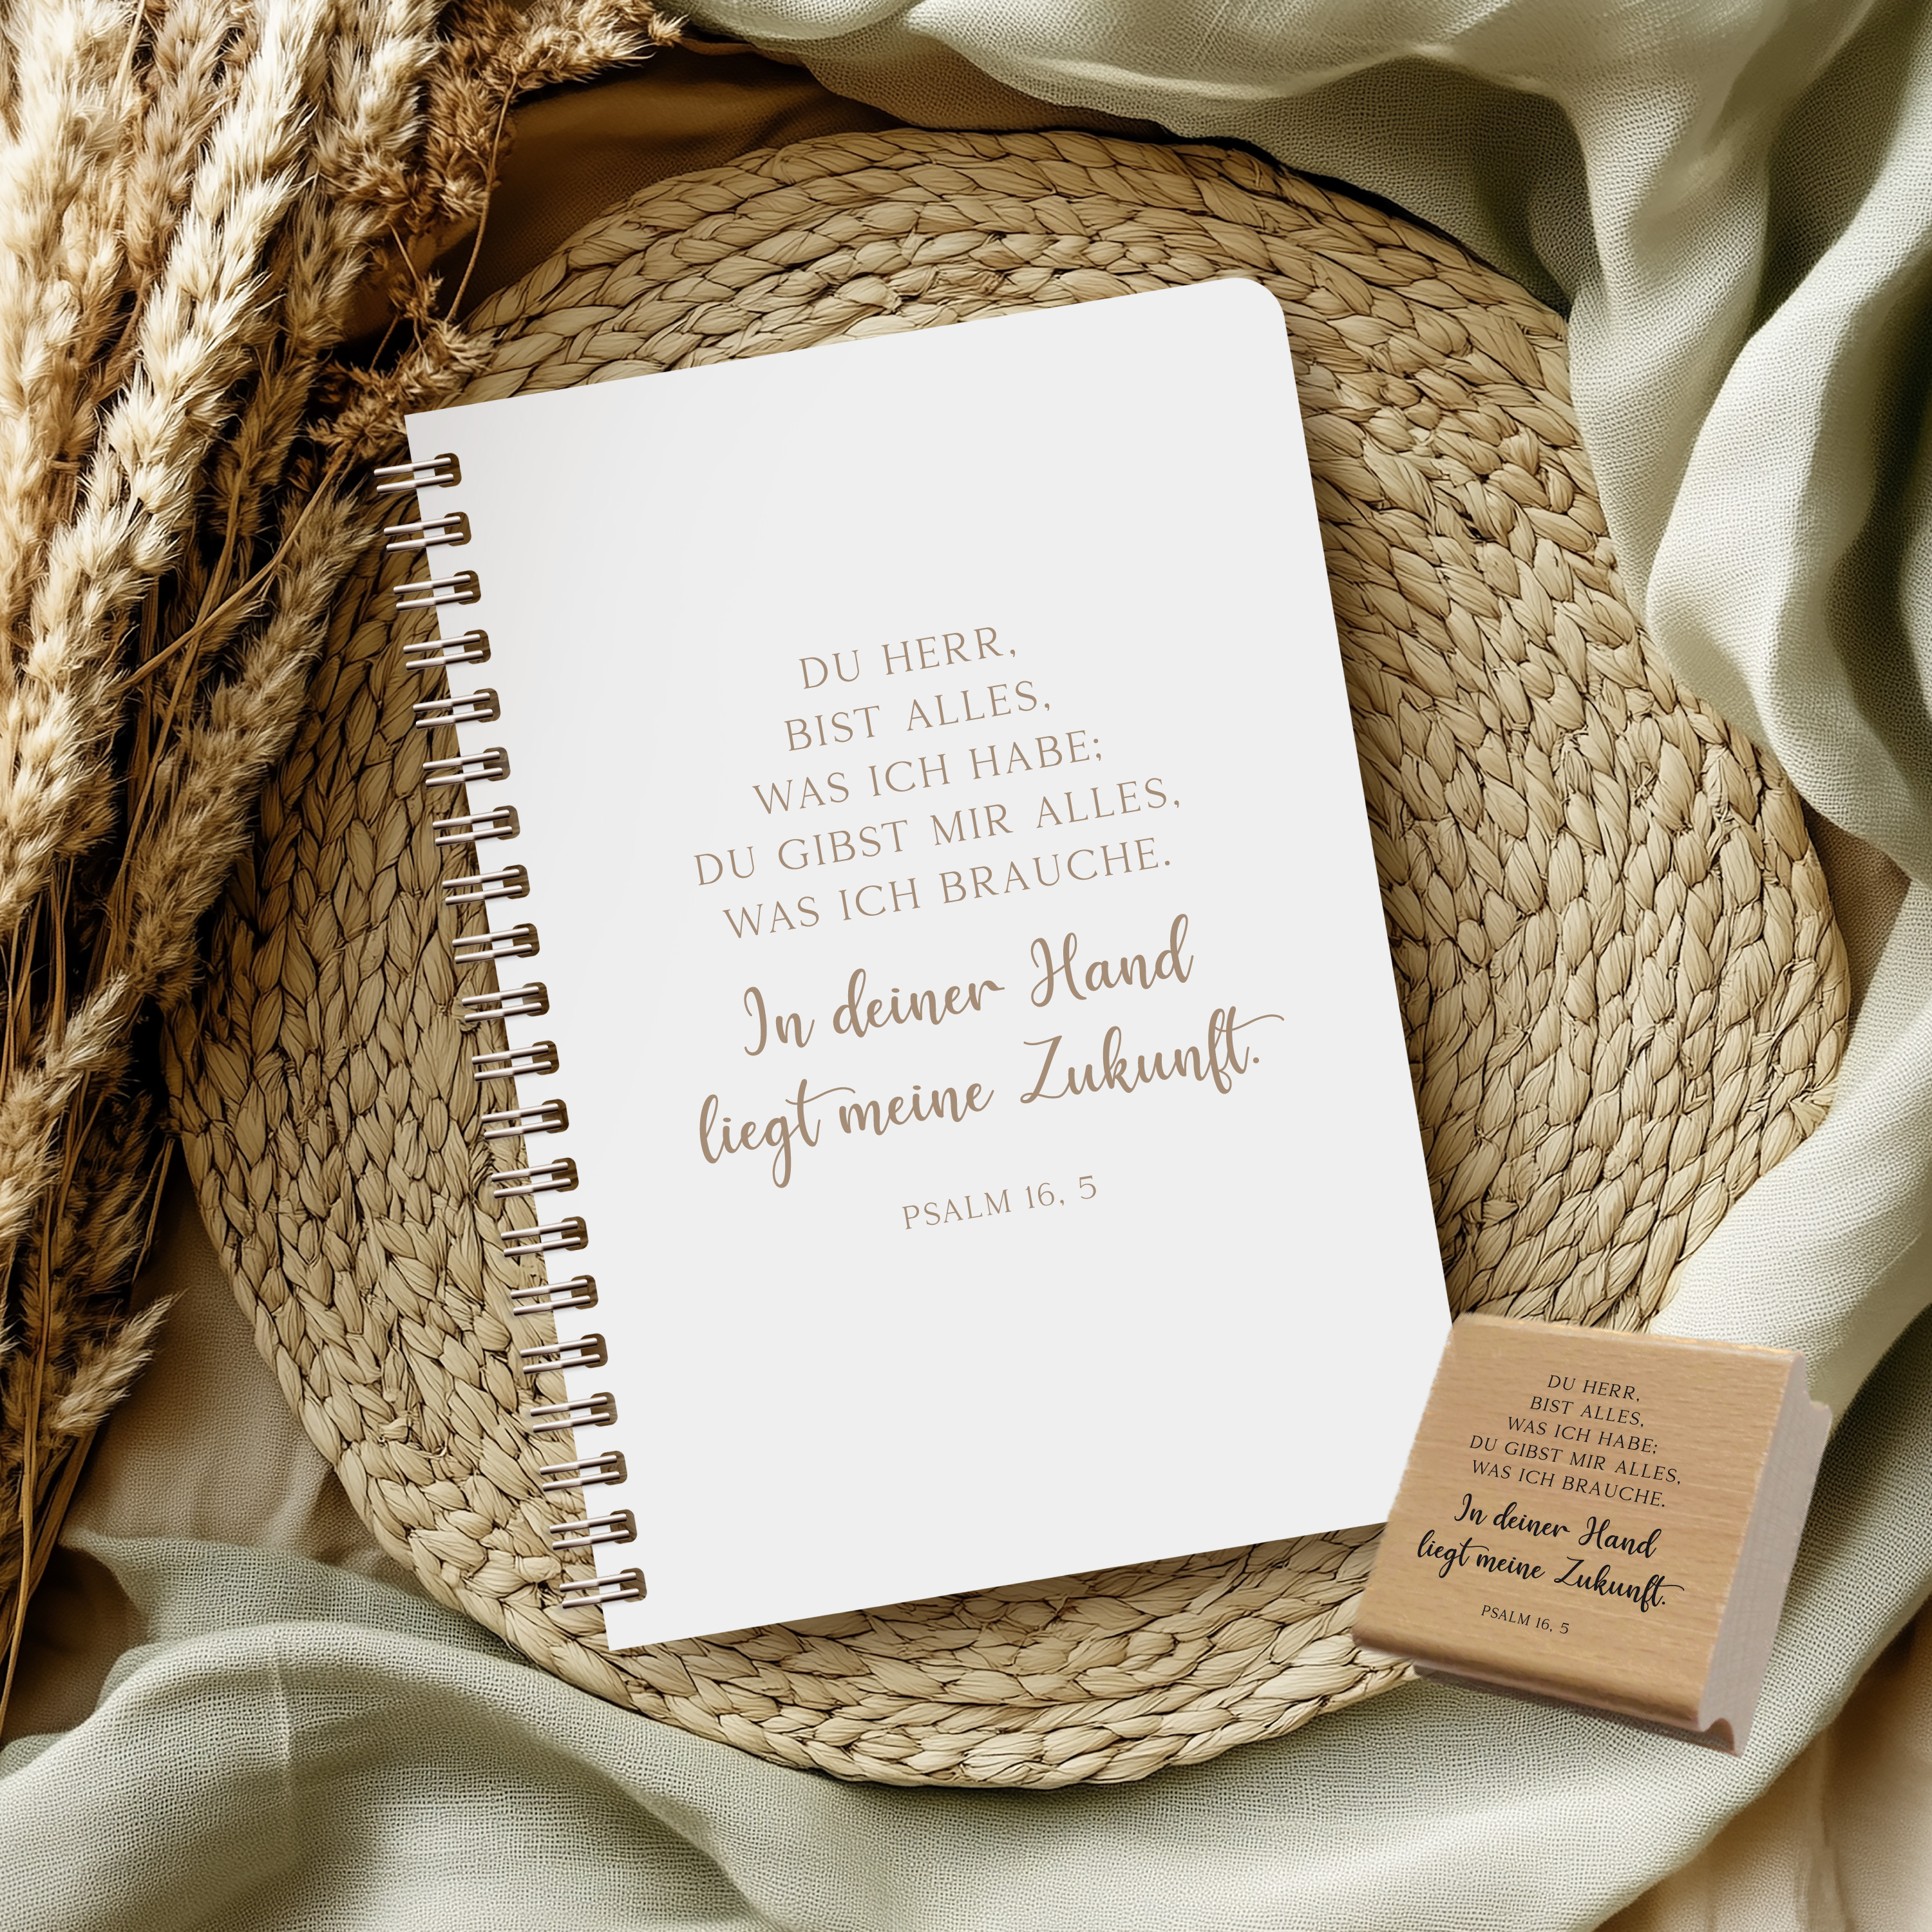 DU HERR,
BIST ALLES,
WAS ICH HABE;
DU GIBST MIR ALLES,
WAS ICH BRAUCHE.
In deiner Hand
liegt meine Zukunft.
PSALM 16, 5
DU HERR,
BIST ALLES,
WAS ICH HABE;
DU GIBST MIR ALLES,
WAS ICH BRAUCHE.
In deiner Hand
liegt meine Zukunft.
PSALM 16, 5